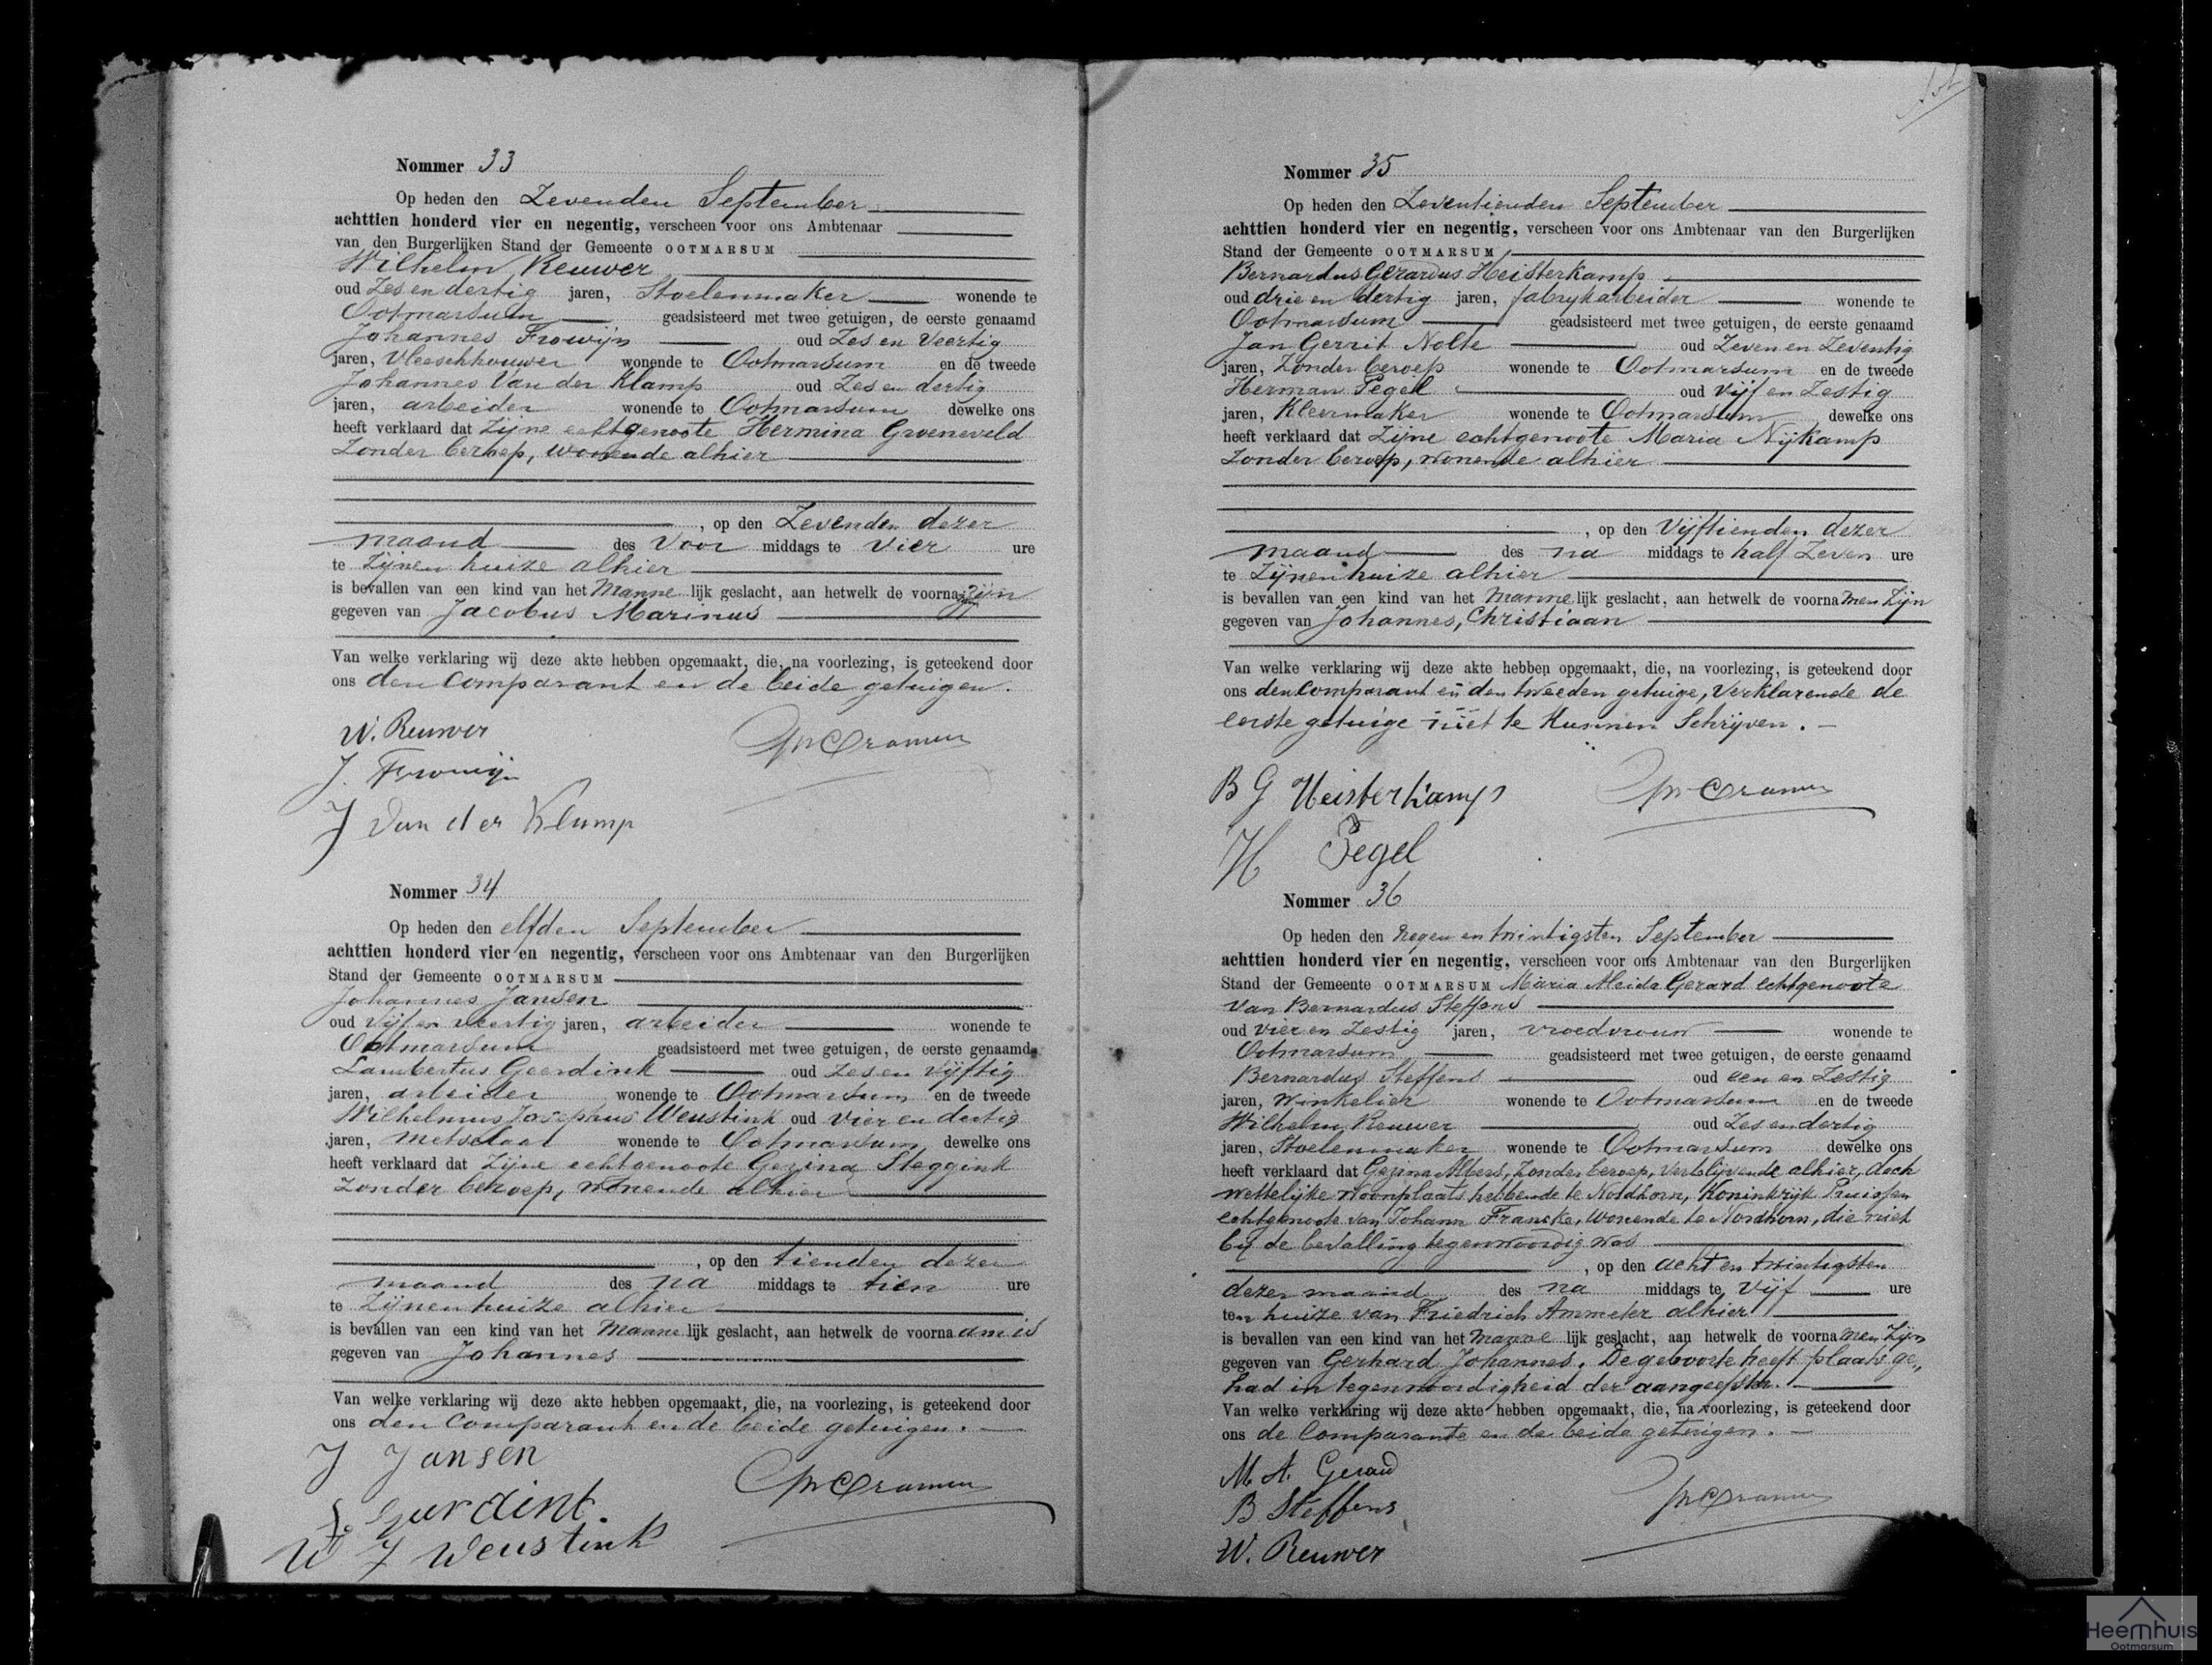 Nommer 33
Op heden den Zevenden September
achttien honderd vier en negentig, verscheen voor ons Ambtenaar
van den Burgerlijken Stand der Gemeente OOTMARSUM
Wilhelm Reuwer
oud Zes en dertig jaren, Stoelenmaker wonende te
Ootmarsum geadsisteerd met twee getuigen, de eerste genaamd
Johannes Frowijn oud Zes en Veertig
jaren, Vleeschhouwer wonende te Ootmarsum en de tweede
Johannes Van der Klamp oud Zes en dertig
jaren, arbeider wonende te Ootmarsum dewelke ons
heeft verklaard dat Zijne echtgenoote Hermina Groeneveld
Zonder beroep, wonende alhier
, op den Zevenden dezer
maand des Voor middags te Vier ure
te Zijnen huize alhier
is bevallen van een kind van het Manne lijk geslacht, aan hetwelk de voorna zijn
gegeven van Jacobus Marinus
Van welke verklaring wij deze akte hebben opgemaakt, die, na voorlezing, is geteekend door
ons den Comparant en de beide getuigen.
W. Reuwer
J. Frowijn
J Van der Klump
Nommer 34
Op heden den elfden September
achttien honderd vier en negentig, verscheen voor ons Ambtenaar van den Burgerlijken
Stand der Gemeente OOTMARSUM
Johannes Jansen
oud Vijf en veertig jaren, arbeider wonende te
Ootmarsum geadsisteerd met twee getuigen, de eerste genaamd
Lambertus Geerdink oud Zes en Vijftig
jaren, arbeider wonende te Ootmarsum en de tweede
Wilhelmus Josephus Weustink oud Vier en dertig
jaren, Metselaar wonende te Ootmarsum dewelke ons
heeft verklaard dat Zijne echtgenoote Gezina Steggink
Zonder beroep, wonende alhier
, op den tienden dezer
maand des na middags te tien ure
te Zijnen huize alhier
is bevallen van een kind van het Manne lijk geslacht, aan hetwelk de voorna am is
gegeven van Johannes
Van welke verklaring wij deze akte hebben opgemaakt, die, na voorlezing, is geteekend door
ons den Comparant en de beide getuigen.
J Jansen
W J Weustink
Nommer 35
Op heden den Zeventienden September
achttien honderd vier en negentig, verscheen voor ons Ambtenaar van den Burgerlijken
Stand der Gemeente OOTMARSUM
Bernardus Gerardus Heisterkamp
oud drie en dertig jaren, fabrykarbeider wonende te
Ootmarsum geadsisteerd met twee getuigen, de eerste genaamd
Jan Gerrit Nolte oud Zeven en Zeventig
jaren, Zonder beroep wonende te Ootmarsum en de tweede
Herman Pegel oud Vijf en Zestig
jaren, Kleermaker wonende te Ootmarsum dewelke ons
heeft verklaard dat Zijne echtgenoote Maria Nijkamp
Zonder beroep, wonende alhier
, op den Vijftienden dezer
maand des na middags te half Zeven ure
te Zijnen huize alhier
is bevallen van een kind van het Manne lijk geslacht, aan hetwelk de voorna men Zijn
gegeven van Johannes, Christiaan
Van welke verklaring wij deze akte hebben opgemaakt, die, na voorlezing, is geteekend door
ons den Comparant en den tweeden getuige, Verklarende de
eerste getuige niet te Kunnen Schrijven.
B G Heisterkamp
H Pegel
Nommer 36
Op heden den Negen en twintigsten September
achttien honderd vier en negentig, verscheen voor ons Ambtenaar van den Burgerlijken
Stand der Gemeente OOTMARSUM Maria Aleida Gerard echtgenoote
Van Bernardus Steffens
oud Vier en Zestig jaren, vroedvrouw wonende te
Ootmarsum geadsisteerd met twee getuigen, de eerste genaamd
Bernardus Steffens oud een en Zestig
jaren, Winkelier wonende te Ootmarsum en de tweede
Wilhelm Reuwer oud Zes en dertig
jaren, Stoelenmaker wonende te Ootmarsum dewelke ons
heeft verklaard dat Gezina Albers, Zonder beroep, Verblijvende alhier, doch
wettelijke Woonplaats hebbende te Nordhorn, Koninkrijk Pruissen
echtgenoote van Johann Francke, Wonende te Nordhorn, die niet
bij de bevalling tegenwoordig was
, op den acht en twintigsten
dezer maand des na middags te Vijf ure
ten huize van Friedrich Ammeter alhier
is bevallen van een kind van het Manne lijk geslacht, aan hetwelk de voorna men Zijn
gegeven van Gerhard Johannes. De geboorte heeft plaats ge„
had in tegenwoordigheid der aangeefster.
Van welke verklaring wij deze akte hebben opgemaakt, die, na voorlezing, is geteekend door
ons de Comparante en de beide getuigen.
M. A. Gerard
B Steffens
W. Reuwer
Heemhuis
Ootmarsum